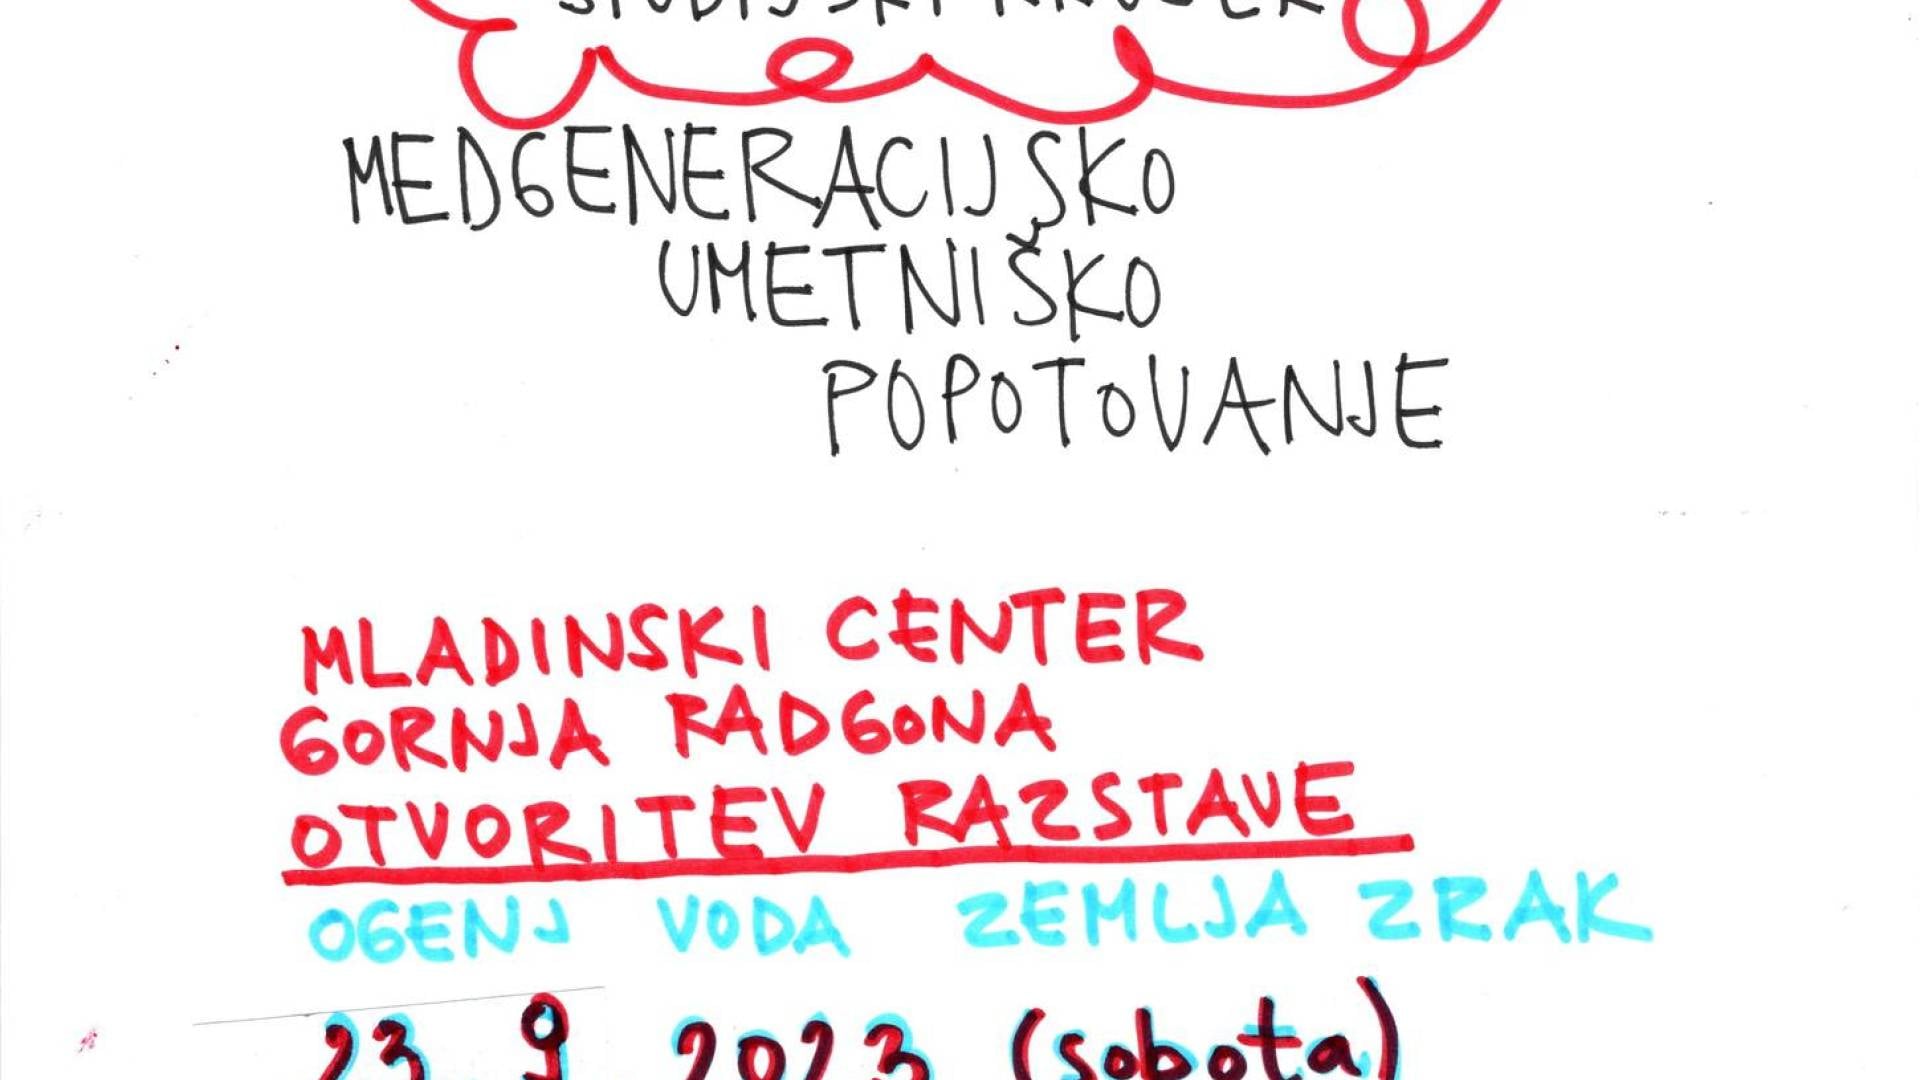 ŠTUDIJSKI KROŽEK
MEDGENERACIJSKO
UMETNIŠKO
POPOTOVANJE
MLADINSKI CENTER
GORNJA RADGONA
OTVORITEV RAZSTAVE
OGENJ VODA ZEMLJA ZRAK
23. 9. 2023 (sobota)